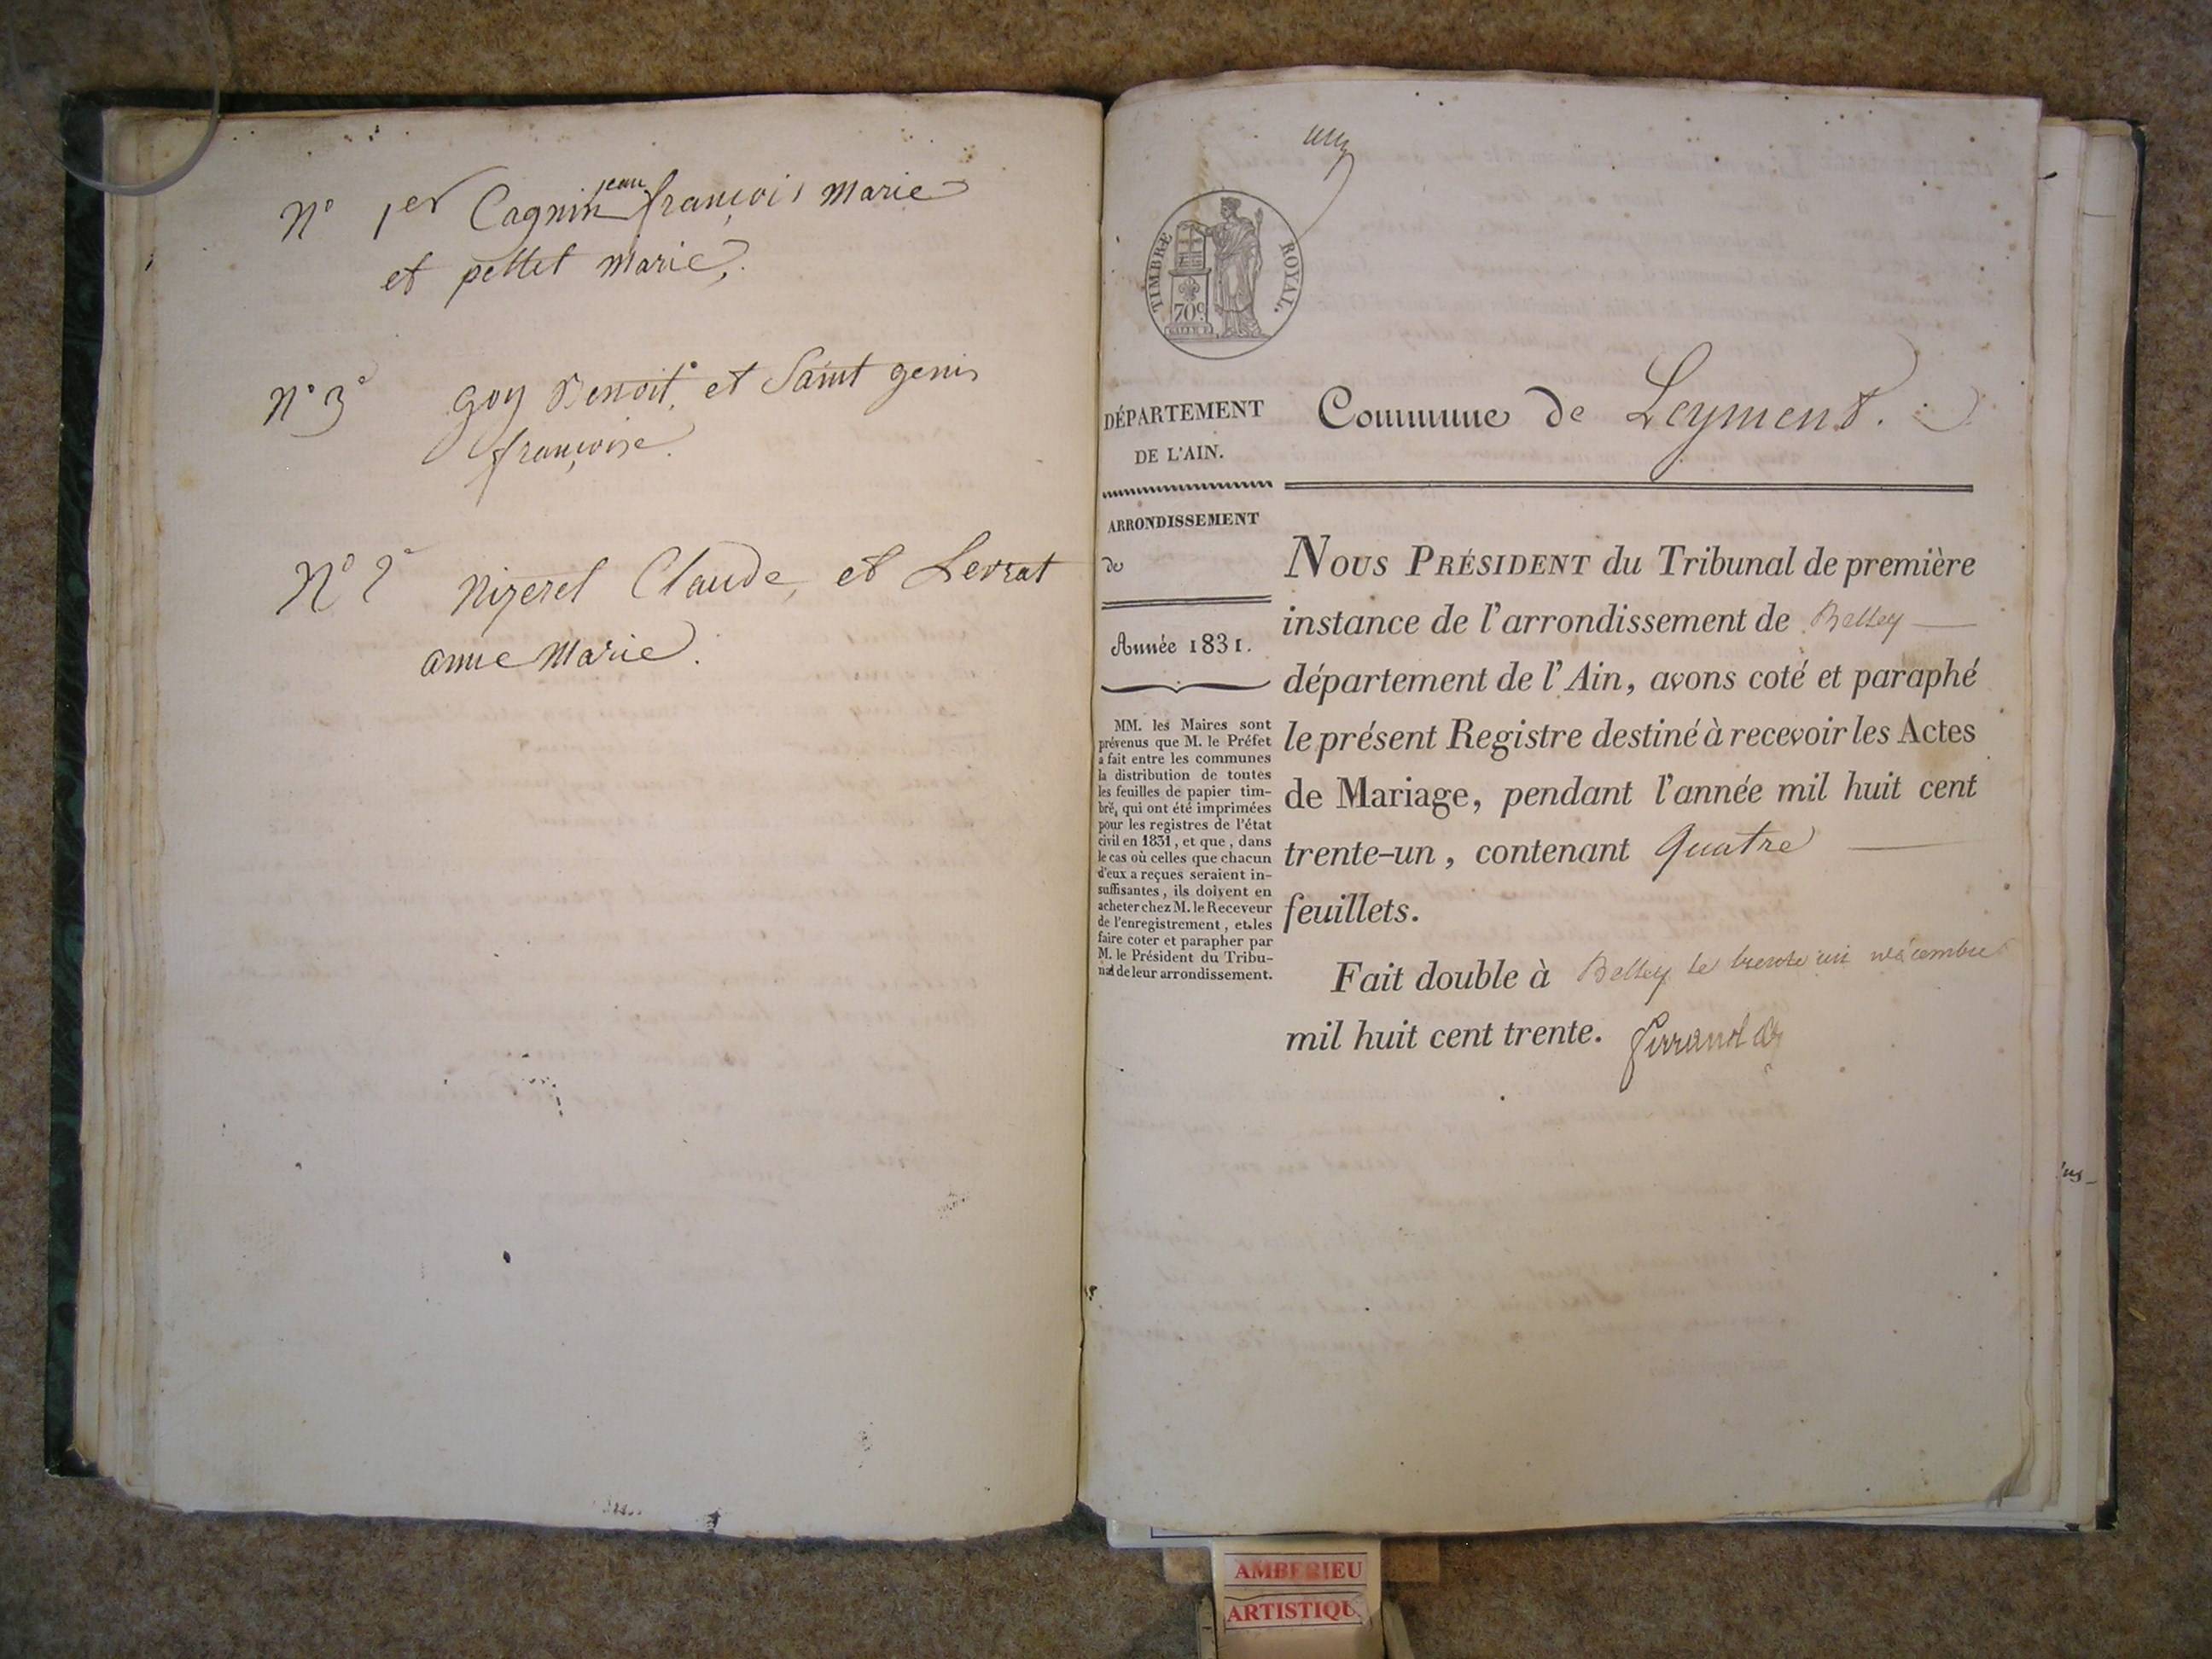 N° 1er Cagnin jean françois marie
et pettet marie,
N° 3e Goy Benoit, et Saint genis
françoise.
N° 2e Nizeret Claude, et Levrat
anne marie.
un
TIMBRE ROYAL.
70c
DÉPARTEMENT
DE L'AIN.
ARRONDISSEMENT
de
Année 1831.
MM. les Maires sont
prévenus que M. le Préfet
a fait entre les communes
la distribution de toutes
les feuilles de papier tim-
bré, qui ont été imprimées
pour les registres de l'état
civil en 1831, et que, dans
le cas où celles que chacun
d'eux a reçues seraient in-
suffisantes, ils doivent en
acheter chez M. le Receveur
de l'enregistrement, et les
faire coter et parapher par
M. le Président du Tribu-
nal de leur arrondissement.
Commune de Leyment.
NOUS PRÉSIDENT du Tribunal de première
instance de l'arrondissement de Belley
département de l'Ain, avons coté et paraphé
le présent Registre destiné à recevoir les Actes
de Mariage, pendant l'année mil huit cent
trente-un, contenant quatre
feuillets.
Fait double à Belley le trente un décembre
mil huit cent trente.
AMBERIEU
ARTISTIQU